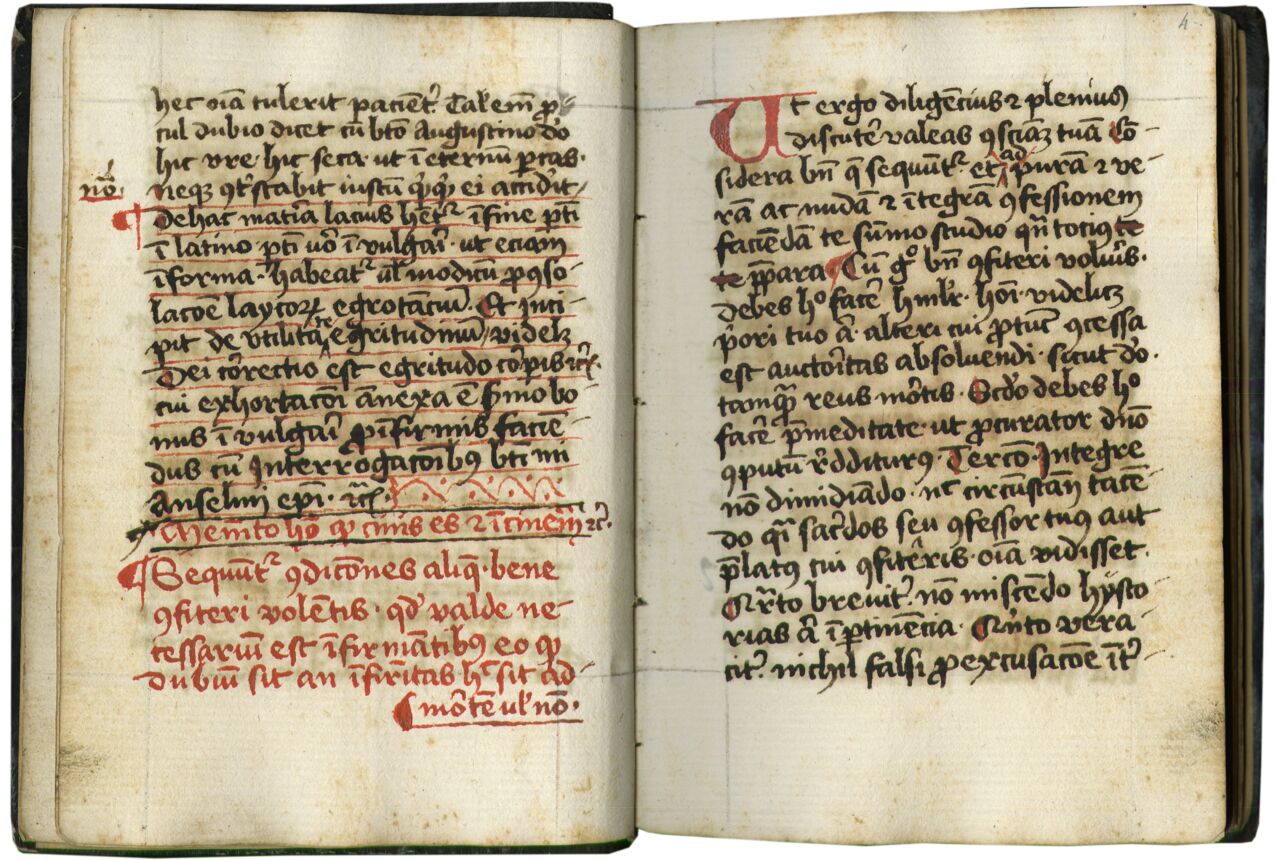 hec oīa tulerit pacient̄. Tal'em p̄-
cul dubio dicet cū bt̄o Augustino dn̄o
hic vre· hic seca· ut ī eternū p̱cas·
neqʒ ꝯt'stabit iustū q̇cq̇ ei accid'it·
nō.
De hac mat'ia lacius het̄ᷣ ī fine p̱ti
ī latino p̱ti v'o ī vulgari· ut eciam
ī forma· habeatᷣ al' modicū p̄ ꝯso-
lacōe laycoꝝ egrotāciū. Et Inci-
pit de vtilita te egritudinū videlʒ
Dei correctio est egritudo corp̱is ꝛc̄.
cui exhortacōi ānexa ē s'mo bo
nus ī vulgari p̄ īfirmis faciē-
dus cū Interrogacōibꝰ bt̄i
Anselmi ep̄i· ꝛc̄.
Mem̄to hō qꝫ cinis es ⁊ ī cinerē ꝛc̄.
Sequūtᷣ ꝯdicōnes aliq̄· bene
ꝯfiteri volētis· qd' valde ne-
cessariū est īfirmātibꝰ eo qꝫ
dubiū sit an īfirītas h' sit ad
mortē ul' nō·
4
Ut ergo diligēcius ⁊ plenius
discuter' valeas ꝯsciāʒ tuā Cō-
sidera bn̄ q̄ sequūtᷣ· et ad purā ⁊ ve-
rā ac nudā ⁊ ītegrā ꝯfessionem
faciēdā te sūmo studio qn̄ tocius te
te p̄para· Cū gͦ bn̄ ꝯfiteri volu'is·
debes hͦ facē hūil'r· hoī videlicʒ
p'ori tuo aͭ alteri cui p̄ tūc ꝯcessa
est auctoritas absoluendi· sicut dō·
tamq̄ reus mortis· Sc'do debes hͦ
facē p̄meditate· ut p̄curator dn̄o
ꝯputū r'dditurꝰ· Tercō· Integre
nō dimidiādo· nͨ circūstān tacē-
do q̄ sac'dos seu ꝯfessor tuꝰ aut
p̄latꝰ cui ꝯfiteris· oīa vidisset·
Qr̄to brevit'· nō miscēdo hysto
rias aͭ īp̱tinēcia· Qn̄to vera-
cit'· nichil falsi p̄ excusacōe īt'-